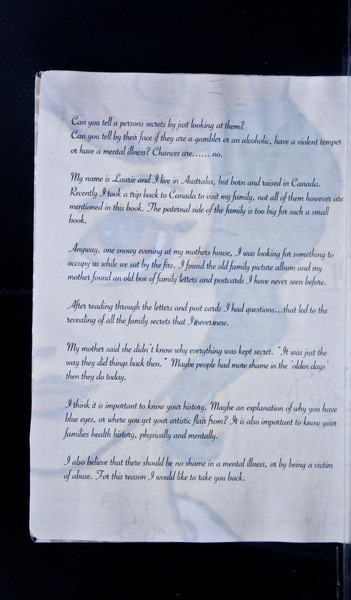 Can you tell a persons secrets by just looking at them?
Can you tell by their face if they are a gambler or an alcoholic, have a violent temper
or have a mental illness? Chances are...... no.
My name is Laurie and I live in Australia, but born and raised in Canada.
Recently I took a trip back to Canada to visit my family, not all of them however are
mentioned in this book. The paternal side of the family is too big for such a small
book.
Anyway, one snowy evening at my mothers house, I was looking for something to
occupy us while we sat by the fire. I found the old family picture album and my
mother found an old box of family letters and postcards I have never seen before.
After reading through the letters and post cards I had questions...that led to the
revealing of all the family secrets that I never knew.
My mother said she didn't know why everything was kept secret. "It was just the
way they did things back then." Maybe people had more shame in the 'olden days'
then they do today.
I think it is important to know your history. Maybe an explanation of why you have
blue eyes, or where you get your artistic flair from? It is also important to know your
families health history, physically and mentally.
I also believe that there should be no shame in a mental illness, or by being a victim
of abuse. For this reason I would like to take you back.